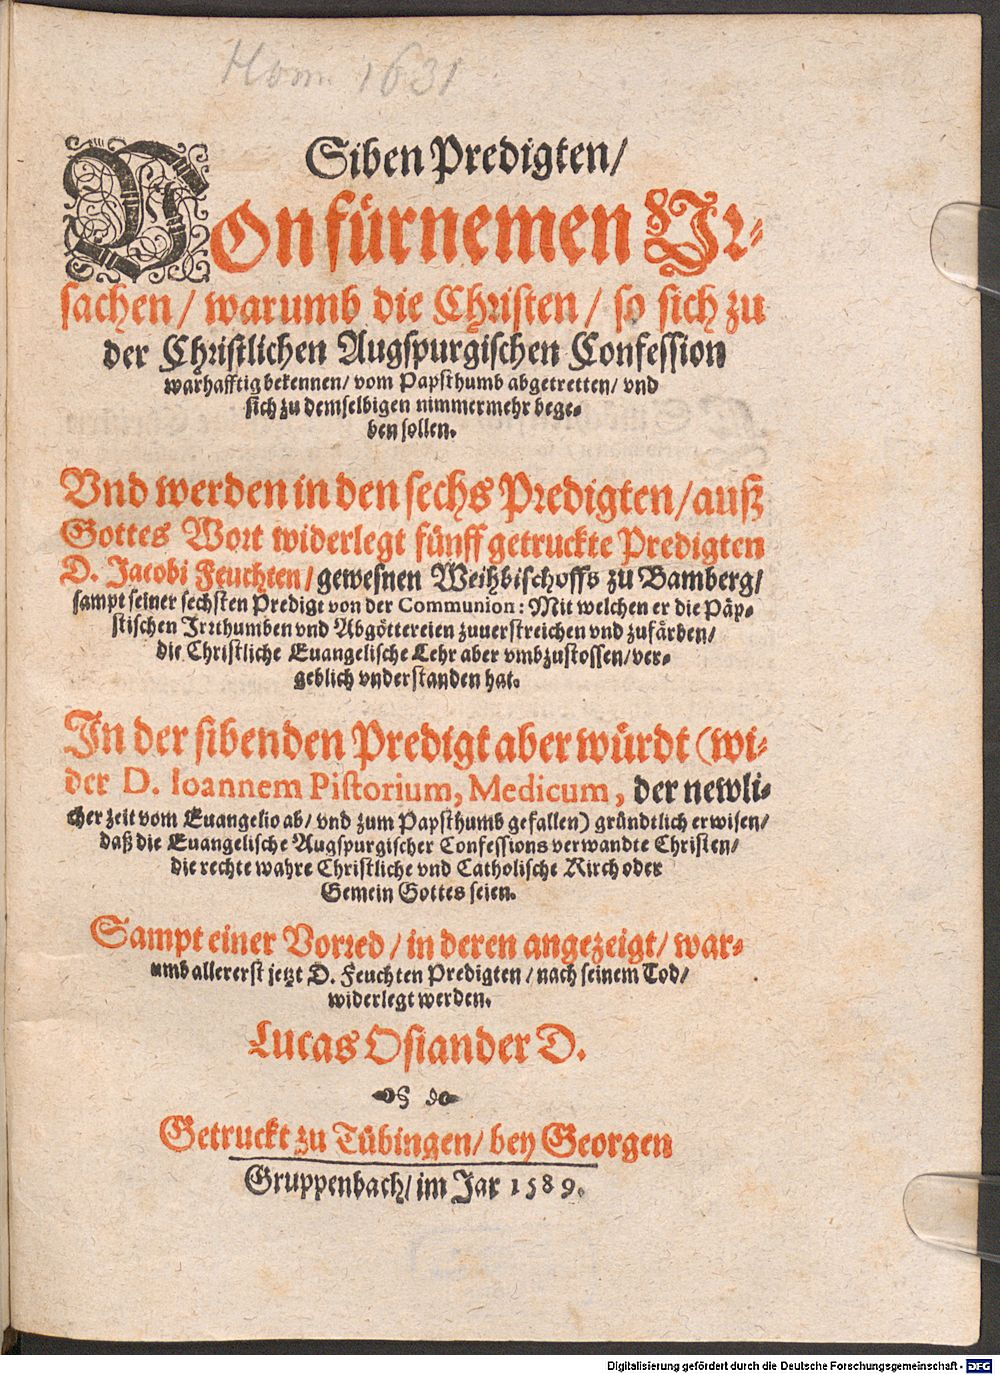 Hom. 1631
Siben Predigten/
VOn fürnemen Vr-
sachen/ warumb die Christen/ so sich zu
der Christlichen Augspurgischen Confession
warhafftig bekennen/ vom Papsthumb abgetretten/ vnd
sich zu demselbigen nimmermehr bege-
ben sollen.
Vnd werden in den sechs Predigten/ auß
Gottes Wort widerlegt fünff getruckte Predigten
D. Jacobi Feuchten/ gewesnen Weihbischoffs zu Bamberg/
sampt seiner sechsten Predigt von der Communion: Mit welchen er die Päp-
stischen Jrrthumben vnd Abgöttereien zuuerstreichen vnd zufärben/
die Christliche Euangelische Lehr aber vmbzustossen/ ver-
geblich vnderstanden hat.
In der sibenden Predigt aber würdt (wi-
der D. Ioannem Pistorium, Medicum, der newli-
cher zeit vom Euangelio ab/ vnd zum Papsthumb gefallen) gründtlich erwisen/
daß die Euangelische Augspurgischer Confessions verwandte Christen/
die rechte wahre Christliche vnd Catholische Kirch oder
Gemein Gottes seien.
Sampt einer Vorred/ in deren angezeigt/ war-
umb allererst jetzt D. Feuchten Predigten/ nach seinem Tod/
widerlegt werden.
Lucas Osiander D.
Getruckt zu Tübingen/ bey Georgen
Gruppenbach/ im Jar 1589.
Digitalisierung gefördert durch die Deutsche Forschungsgemeinschaft - DFG